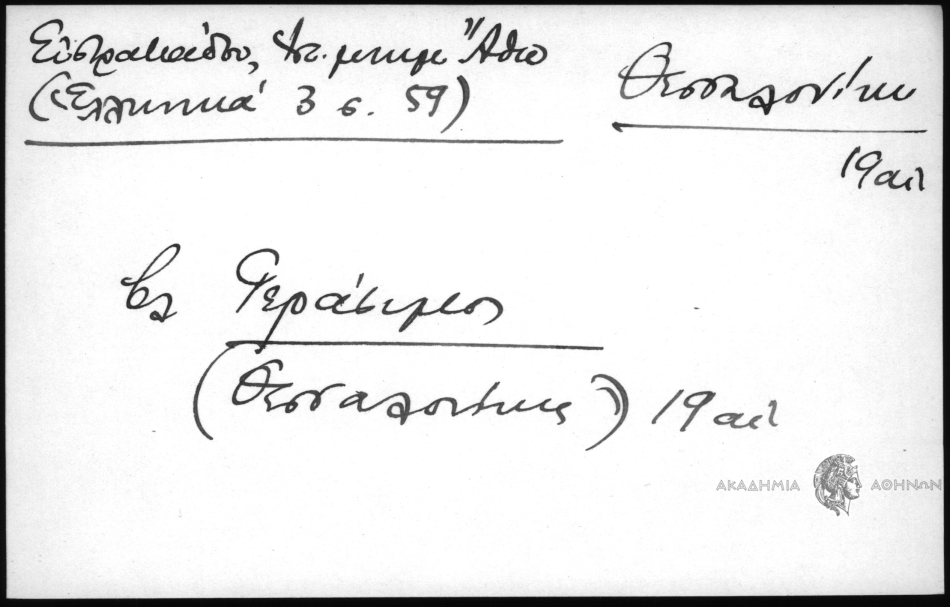 Εὐστρατιάδου, Ἱστ. μνημ. Ἄθω
(Ἑλληνικά 3 σ. 59)
Θεσσαλονίκη
19 αἰ
βλ Γεράσιμος
(Θεσσαλονίκης) 19 αἰ
ΑΚΑΔΗΜΙΑ ΑΘΗΝΩΝ